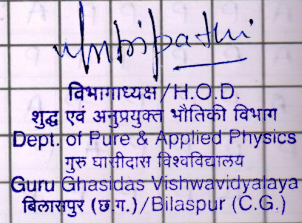 विभागाध्यक्ष/H.O.D.
शुद्ध एवं अनुप्रयुक्त भौतिकी विभाग
Dept. of Pure & Applied Physics
गुरु घासीदास विश्वविद्यालय
Guru Ghasidas Vishwavidyalaya
बिलासपुर (छ.ग.)/Bilaspur (C.G.)